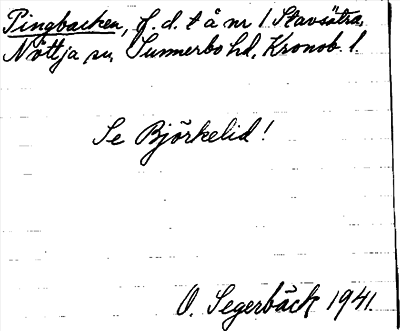 Pingbacken, f. d. t å nr 1. Stavsätra,
Nöttja sn, Sunnerbo hd, Kronob. l.
Se Björkelid!
O. Segerbäck 1941.